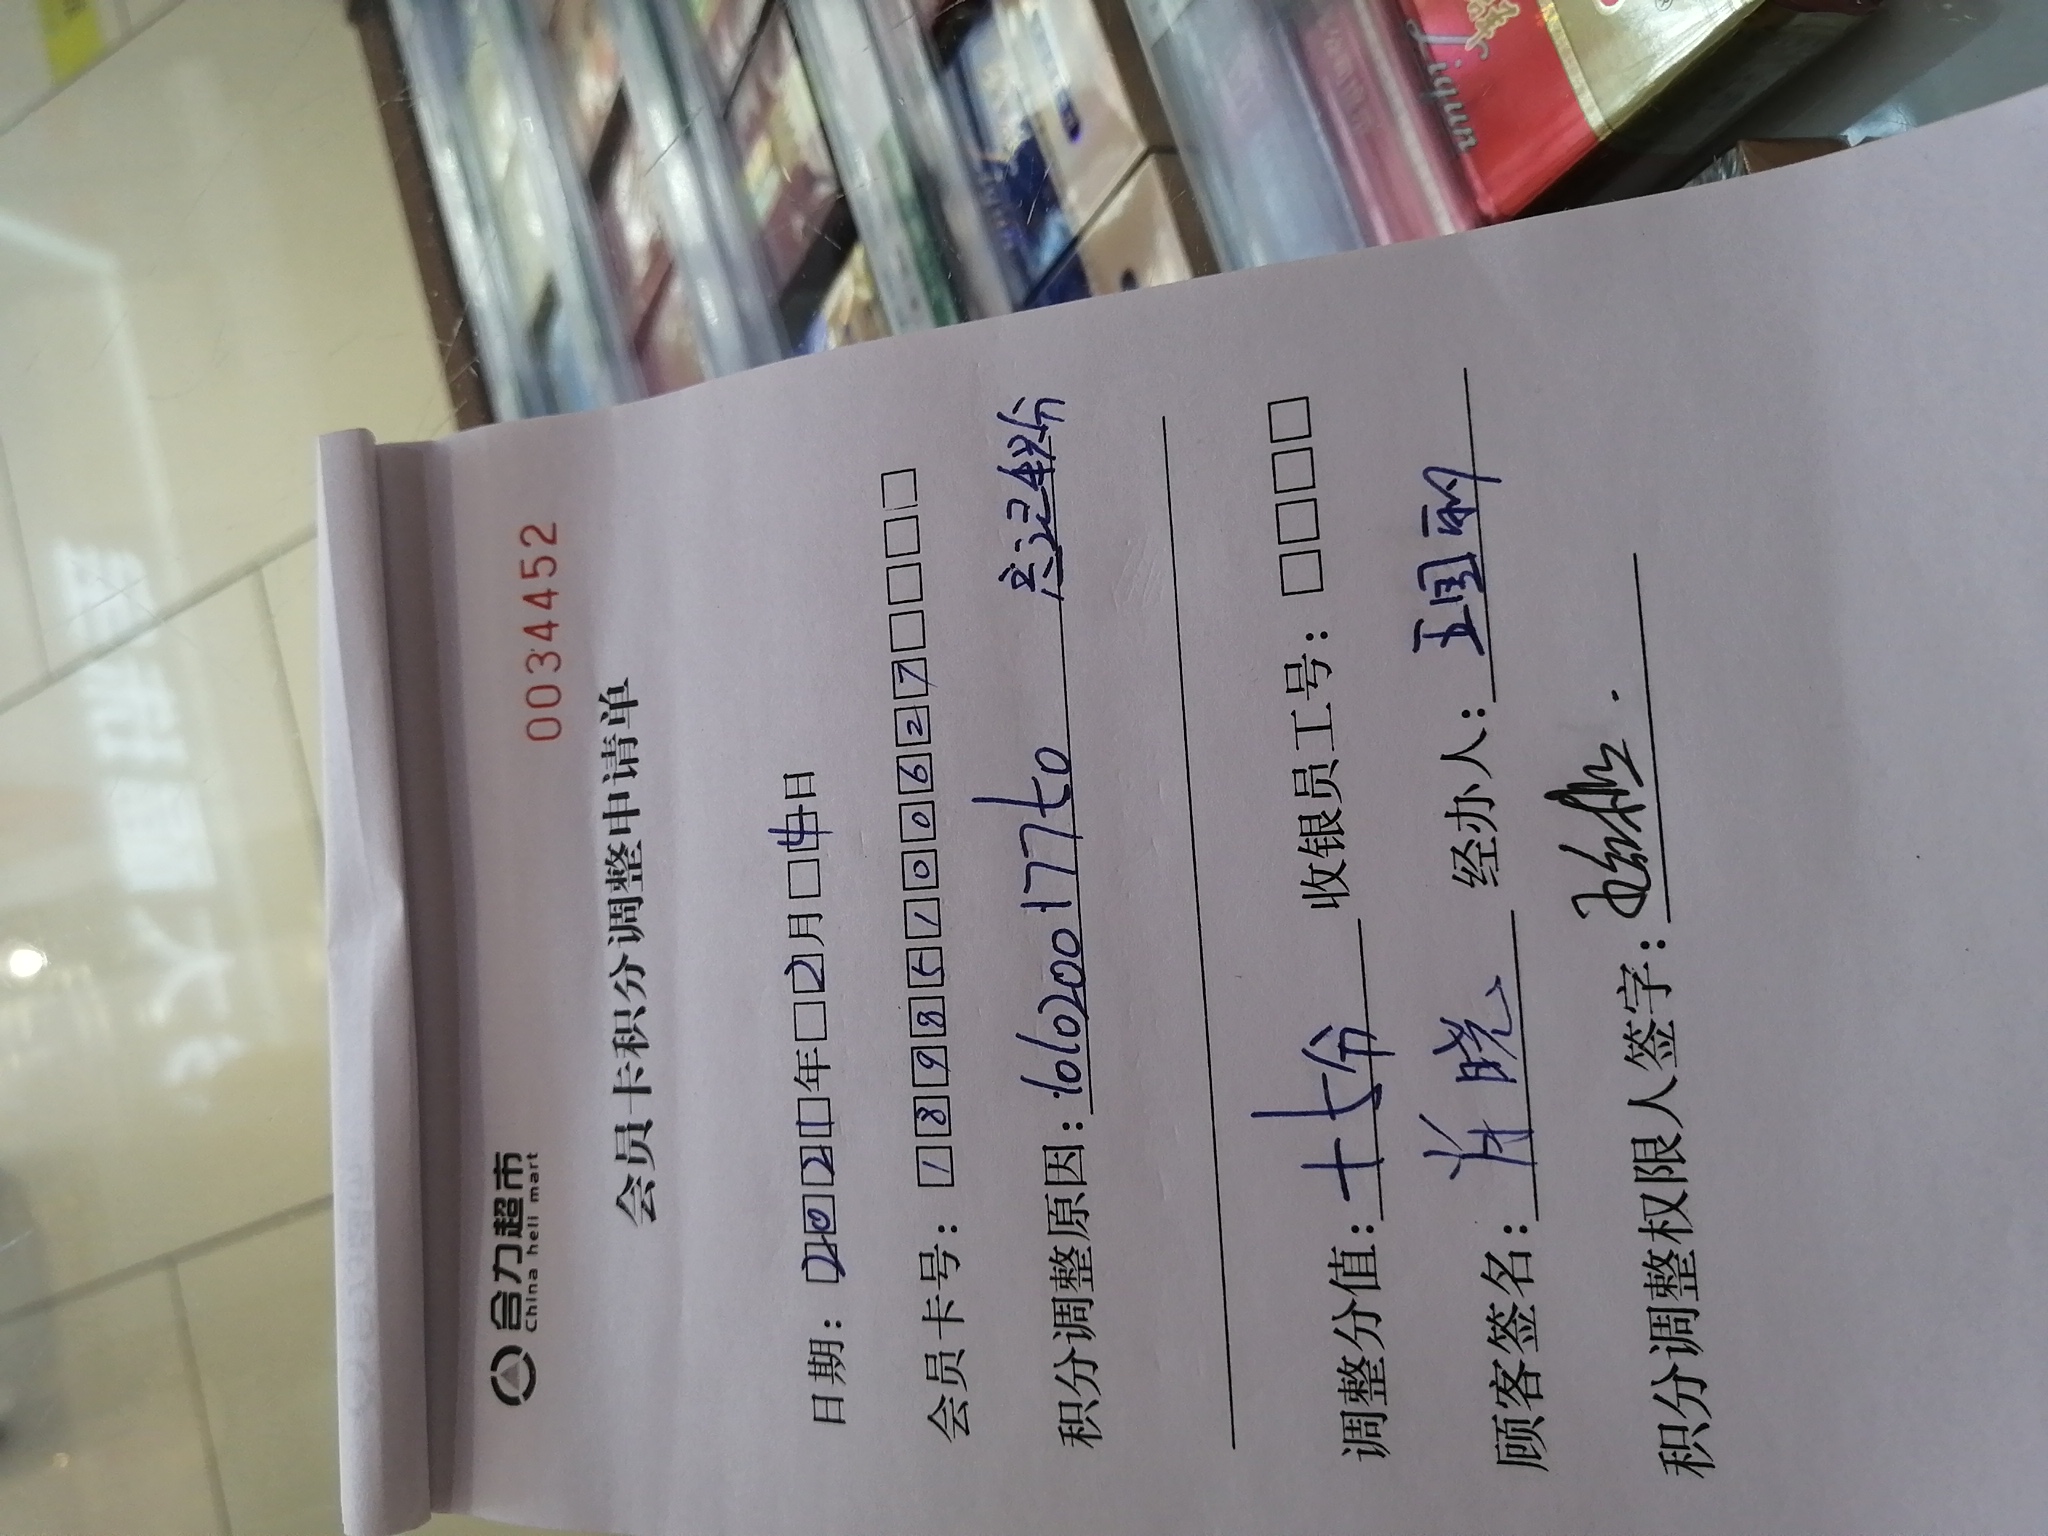 合力超市
China heli mart
0034452
会员卡积分调整申请单
日期：2021年2月4日
会员卡号：18985100627
积分调整原因：1010200177七0 忘记积分
调整分值：十七分 收银员工号：
顾客签名：肖晓 经办人：王国丽
积分调整权限人签字：
Liqun